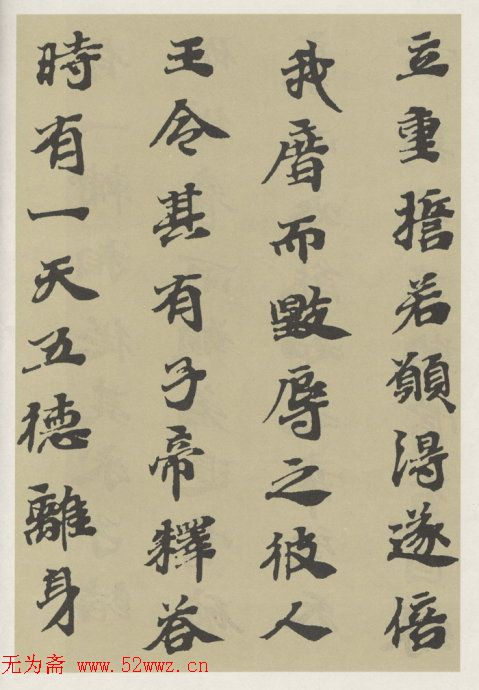 立重擔若願得遂倍
我厝而毀辱之彼人
王令其有子帝釋荅
時有一天五德離身
无为斋 www.52wwz.cn